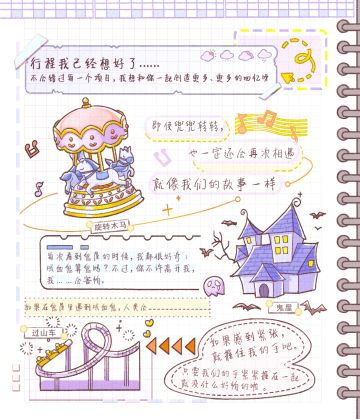 行程我已经想好了……
不会错过每一个项目，我想和你一起创造更多、更多的回忆哦
即使兜兜转转，
也一定还会再次相遇
就像我们的故事一样
旋转木马
每次看到鬼屋的时候，我都很好奇：
吸血鬼算鬼吗？不过，你不许离开我，
我……会害怕。
鬼屋
如果在鬼屋里遇到吸血鬼，人类会……
过山车
如果感到紧张，
就握住我的手吧。
只要我们的手紧紧握在一起
就没什么好怕的啦。